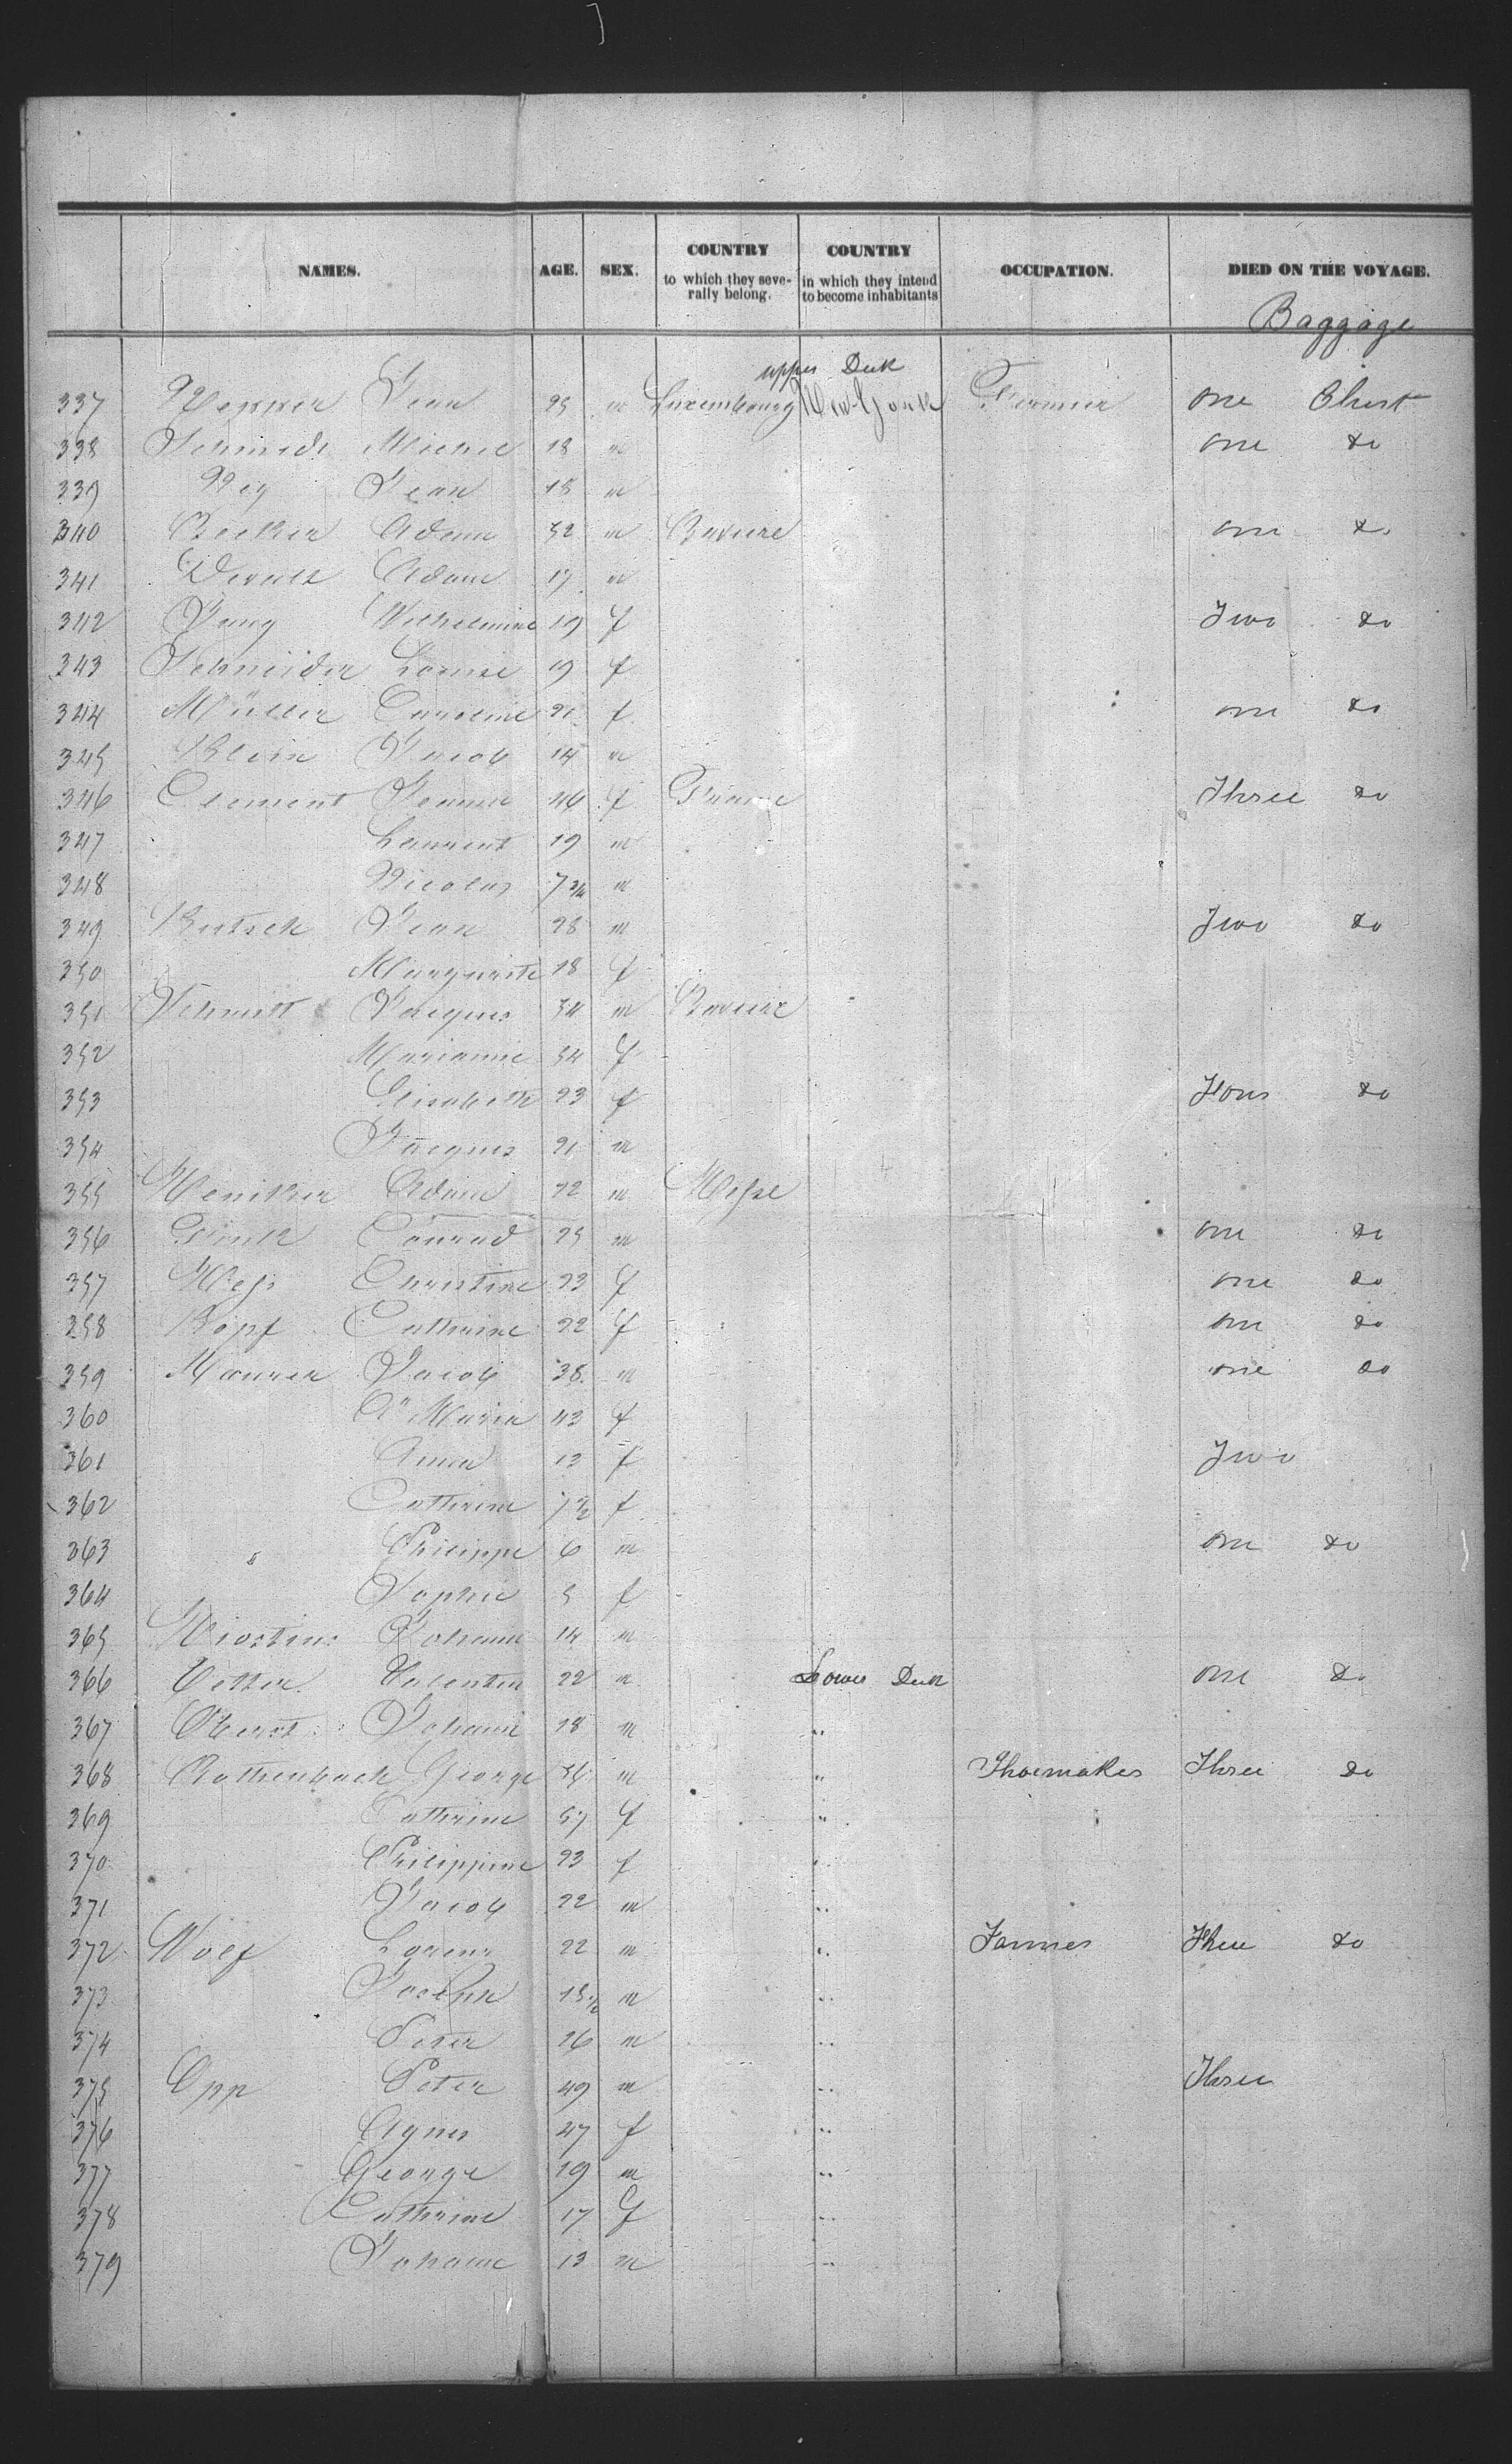 NAMES. AGE. SEX. COUNTRY to which they severally belong. COUNTRY in which they intend to become inhabitants OCCUPATION. DIED ON THE VOYAGE.
Baggage
upper Deck
337 Jean 25 m Luxembourg New-York Fermier one Chest
338 Schmidt Michel 18 m one do
339 Ney Jean 18 m
340 Becker Adam 32 m Baviere one do
341 Adam 17 m
342 Jung Wilhelmine 19 f Two do
343 Schneider Louise 19 f
344 Müller Caroline 21 f one do
345 Klein Jacob 14 m
346 Clement Jeanne 46 f France Three do
347 Laurent 19 m
348 Nicolas 7 3/4 m
349 Kutsch Jean 28 m Two do
350 Marguerite 18 f
351 Schmitt Jacques 54 m Baviere
352 Marianne 54 f
353 Elisabeth 23 f Four do
354 Jacques 21 m
355 Adam 22 m Hesse
356 Conrad 25 m one do
357 Hess Christine 23 f one do
358 Kopf Catherine 22 f one do
359 Maurer Jacob 38 m one do
360 Aa Maria 43 f
361 Anna 13 f Two
362 Catherine 7 1/2 f
363 Philippe 6 m one do
364 Sophie 5 f
365 Johann 14 m
366 Vetter Valentin 22 m Lower Deck one do
367 Oberst Johann 18 m "
368 Rothenbach George 54 m " Shoemaker Three do
369 Catherine 57 f "
370 Philippine 23 f "
371 Jacob 22 m "
372 Wolf Lorenz 22 m " Farmer Three do
373 Joseph 18 1/2 m "
374 Peter 26 m "
375 Opp Peter 49 m " Three
376 Agnes 47 f "
377 George 19 m "
378 Catherine 17 f "
379 Johann 13 m "